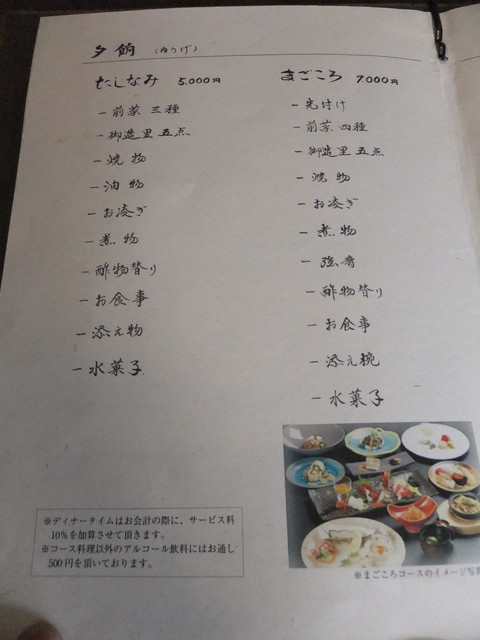 夕餉(ゆうげ)
たしなみ 5.000円
一 前菜 三種
一 御造里 五点
一 焼物
一 油物
一 お凌ぎ
一 煮物
一 酢物替り
一 お食事
一 添え物
一 水菓子
まごころ 7.000円
一 先付け
一 前菜 四種
一 御造里 五点
一 焼物
一 お凌ぎ
一 煮物
一 強肴
一 酢物替り
一 お食事
一 添え椀
一 水菓子
※ディナータイムはお会計の際に、サービス料
10%を加算させて頂きます。
※コース料理以外のアルコール飲料にはお通し
500円を頂いております。
※まごころコースのイメージ写真